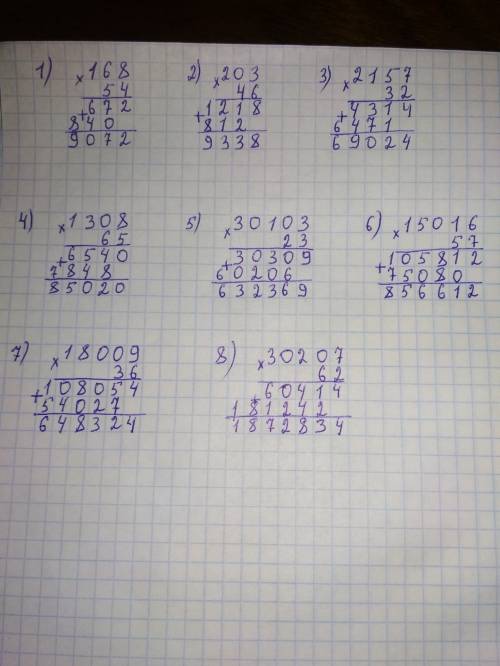 1) ×168
54
+672
840
9072
2) ×203
46
+1218
812
9338
3) ×2157
32
+4314
6471
69024
4) ×1308
65
+6540
7848
85020
5) ×30103
23
+30309
60206
632369
6) ×15016
57
+105812
75080
856612
7) ×18009
36
+108054
54027
648324
8) ×30207
62
+60414
181242
1872834